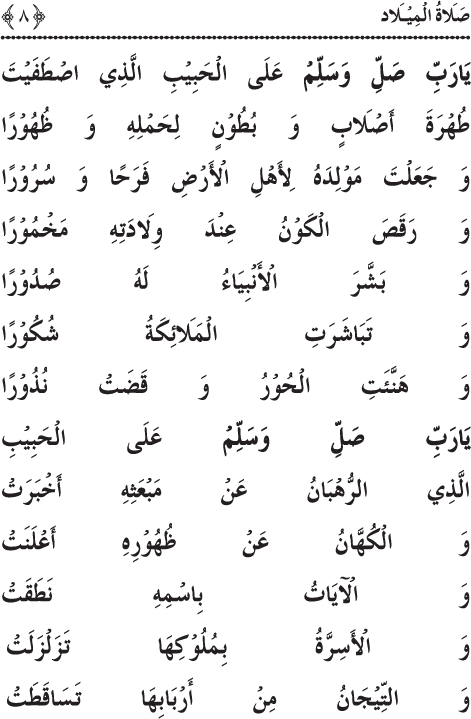 صَلَاةُ الْمِيْلَاد ﴿٨﴾
يَارَبِّ صَلِّ وَسَلِّمْ عَلَى الْحَبِيْبِ الَّذِي اصْطَفَيْتَ
طُهْرَةَ أَصْلَابٍ وَ بُطُوْنٍ لِحَمْلِهِ وَ ظُهُوْرًا
وَ جَعَلْتَ مَوْلِدَهُ لِأَهْلِ الْأَرْضِ فَرَحًا وَ سُرُوْرًا
وَ رَقَصَ الْكَوْنُ عِنْدَ وِلَادَتِهِ مَخْمُوْرًا
وَ بَشَّرَ الْأَنْبِيَاءُ لَهُ صُدُوْرًا
وَ تَبَاشَرَتِ الْمَلَائِكَةُ شُكُوْرًا
وَ هَنَّئَتِ الْحُوْرُ وَ قَضَتْ نُذُوْرًا
يَارَبِّ صَلِّ وَسَلِّمْ عَلَى الْحَبِيْبِ
الَّذِي الرُّهْبَانُ عَنْ مَبْعَثِهِ أَخْبَرَتْ
وَ الْكُهَّانُ عَنْ ظُهُوْرِهِ أَعْلَنَتْ
وَ الْآيَاتُ بِاسْمِهِ نَطَقَتْ
وَ الْأَسِرَّةُ بِمُلُوْكِهَا تَزَلْزَلَتْ
وَ التِّيْجَانُ مِنْ أَرْبَابِهَا تَسَاقَطَتْ